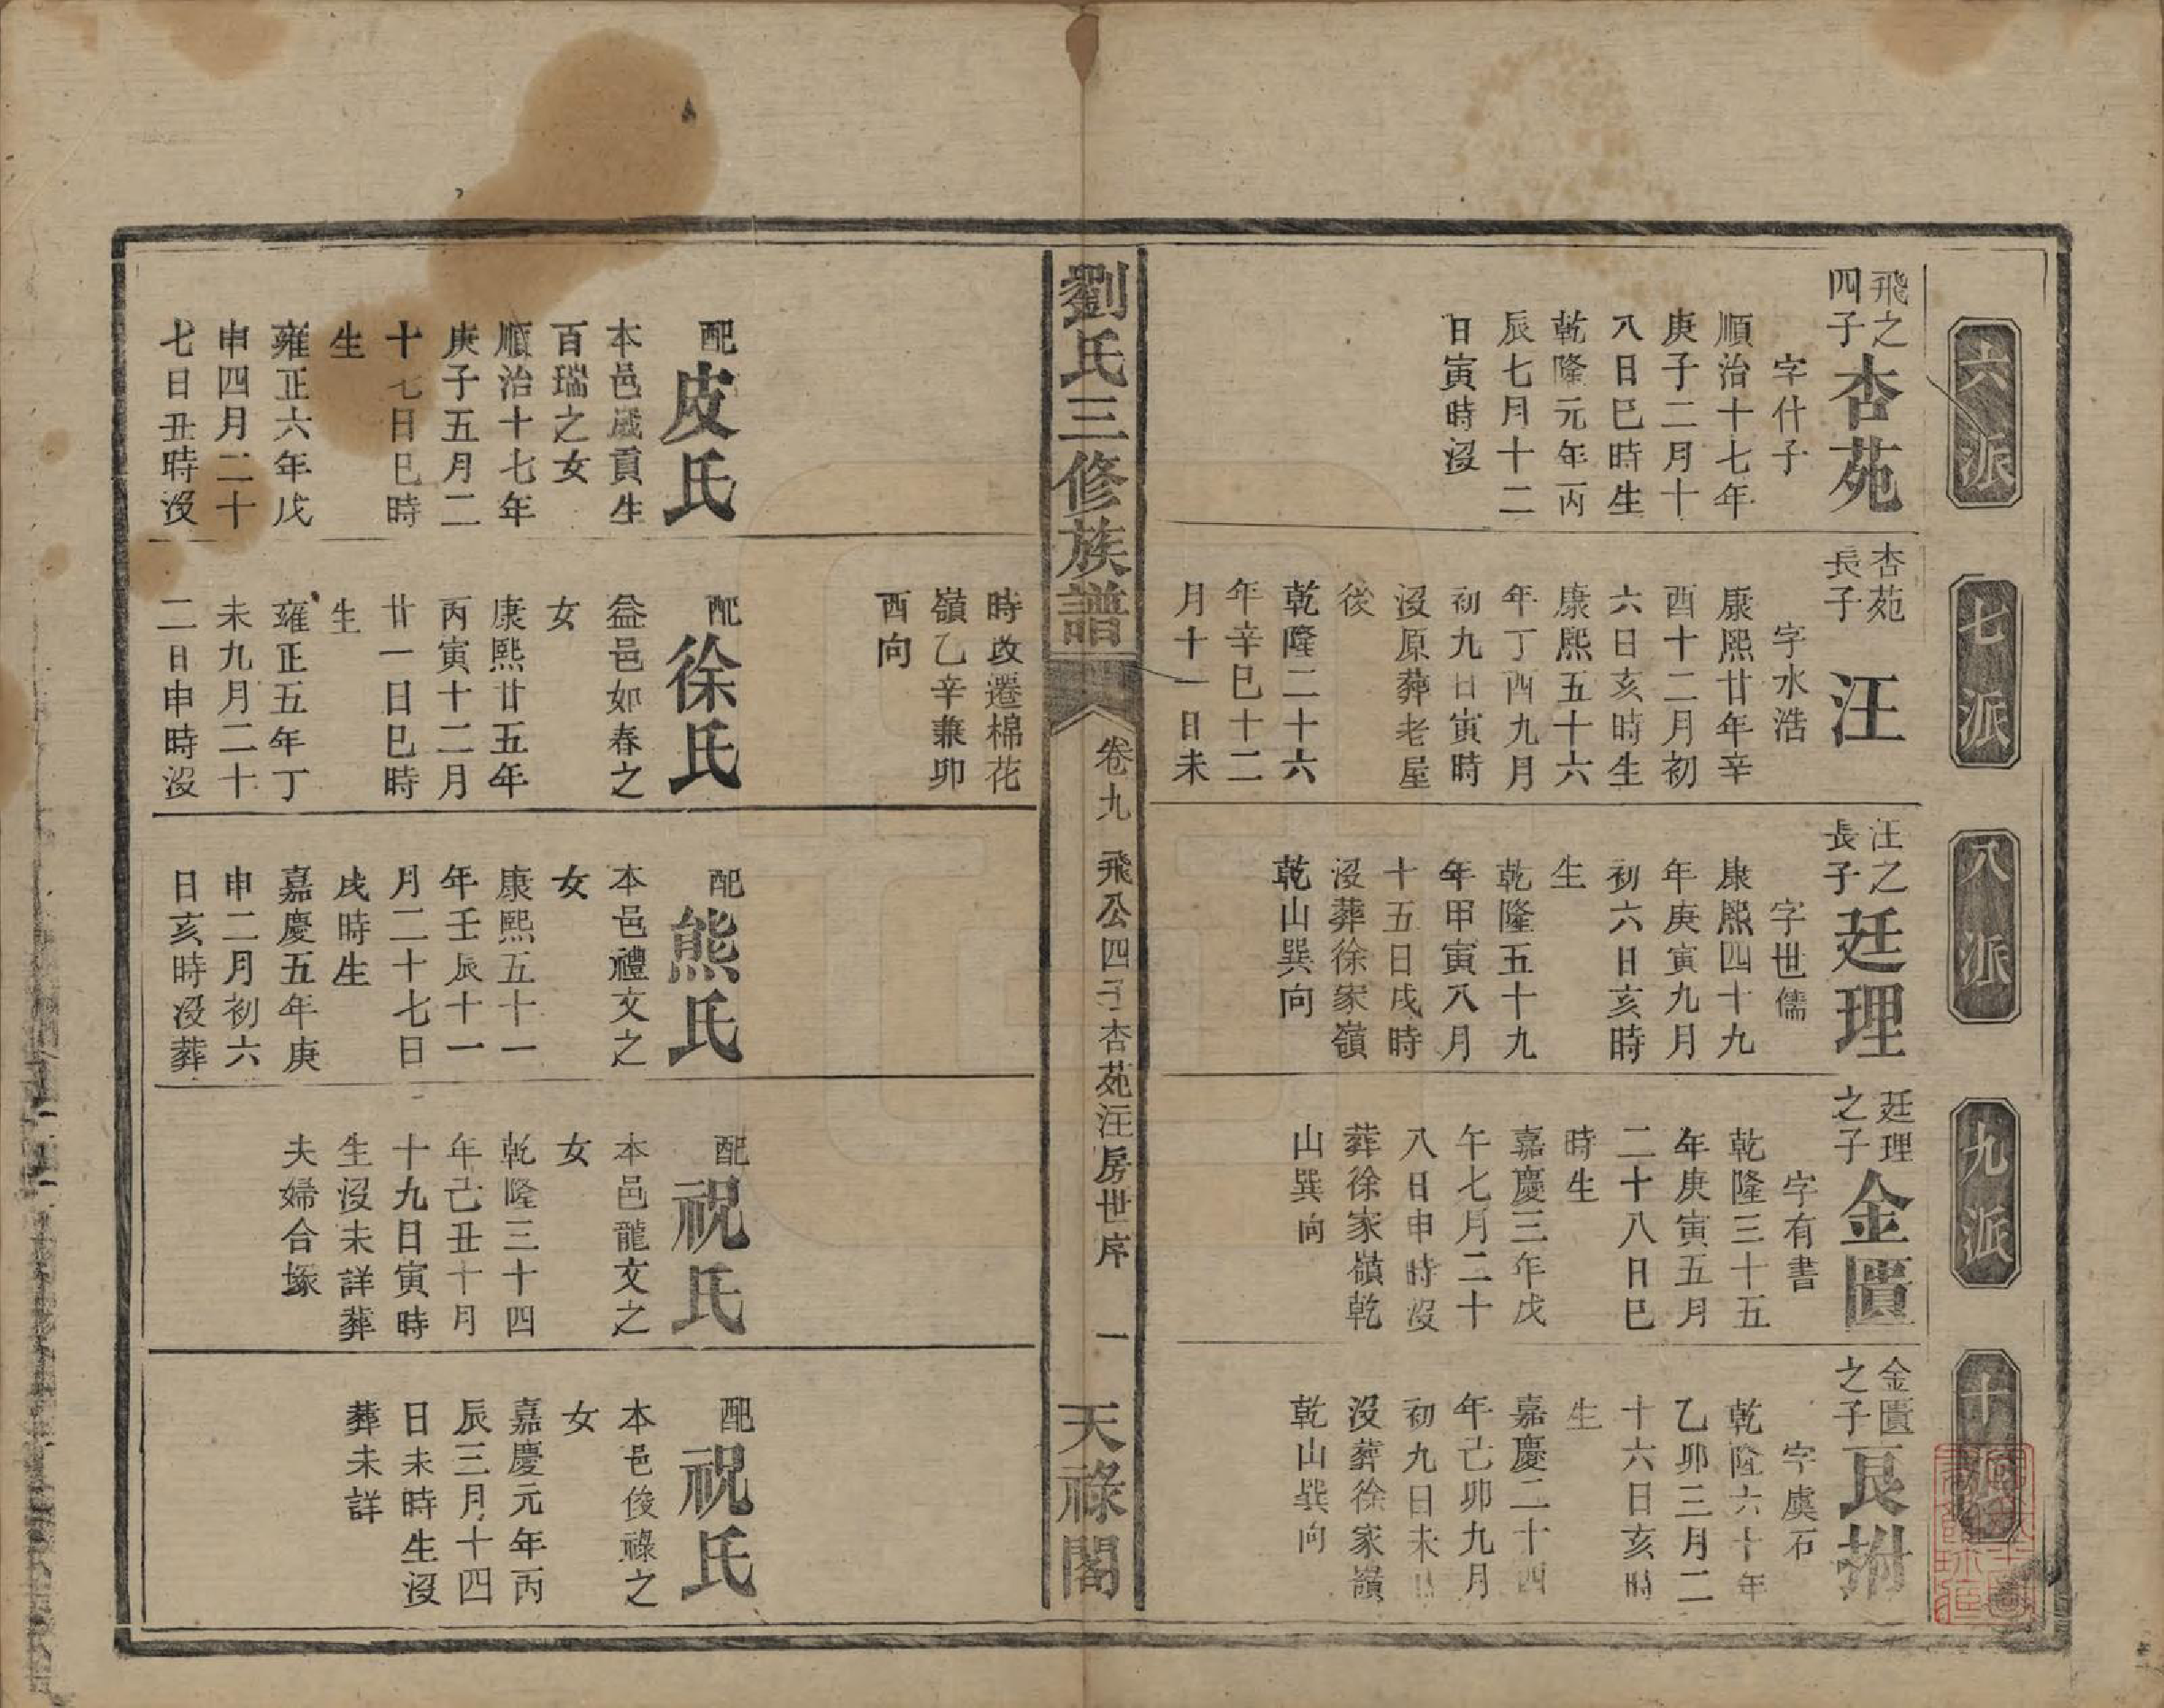 六派
飛之
四子
杏苑
字什子
順治十七年
庚子二月十
八日巳時生
乾隆元年丙
辰七月十二
日寅時沒
七派
杏苑
長子
汪
字水浩
康熙廿年辛
酉十二月初
六日亥時生
康熙五十六
年丁酉九月
初九日寅時
沒原葬老屋
後
乾隆二十六
年辛巳十二
月十一日未
八派
汪之
長子
廷理
字世儒
康熙四十九
年庚寅九月
初六日亥時
生
乾隆五十九
年甲寅八月
十五日戌時
沒葬徐家嶺
乾山巽向
九派
廷理
之子
金匱
字有書
乾隆三十五
年庚寅五月
二十八日巳
時生
嘉慶三年戊
午七月二十
八日申時沒
葬徐家嶺乾
山巽向
十派
金匱
之子
艮拊
字虞石
乾隆六十年
乙卯三月二
十六日亥時
生
嘉慶二十四
年己卯九月
初九日未時
沒葬徐家嶺
乾山巽向
劉氏三修族譜
卷九
飛公四子杏苑汪房世序
一
天祿閣
時改遷棉花
嶺乙辛兼卯
酉向
配
皮氏
本邑歲貢生
百瑞之女
順治十七年
庚子五月二
十七日巳時
生
雍正六年戊
申四月二十
七日丑時沒
配
徐氏
益邑如春之
女
康熙廿五年
丙寅十二月
廿一日巳時
生
雍正五年丁
未九月二十
二日申時沒
配
熊氏
本邑禮文之
女
康熙五十一
年壬辰十一
月二十七日
戌時生
嘉慶五年庚
申二月初六
日亥時沒葬
配
祝氏
本邑龍文之
女
乾隆三十四
年己丑十月
十九日寅時
生沒未詳葬
夫婦合塚
配
祝氏
本邑俊祿之
女
嘉慶元年丙
辰三月十四
日未時生沒
葬未詳